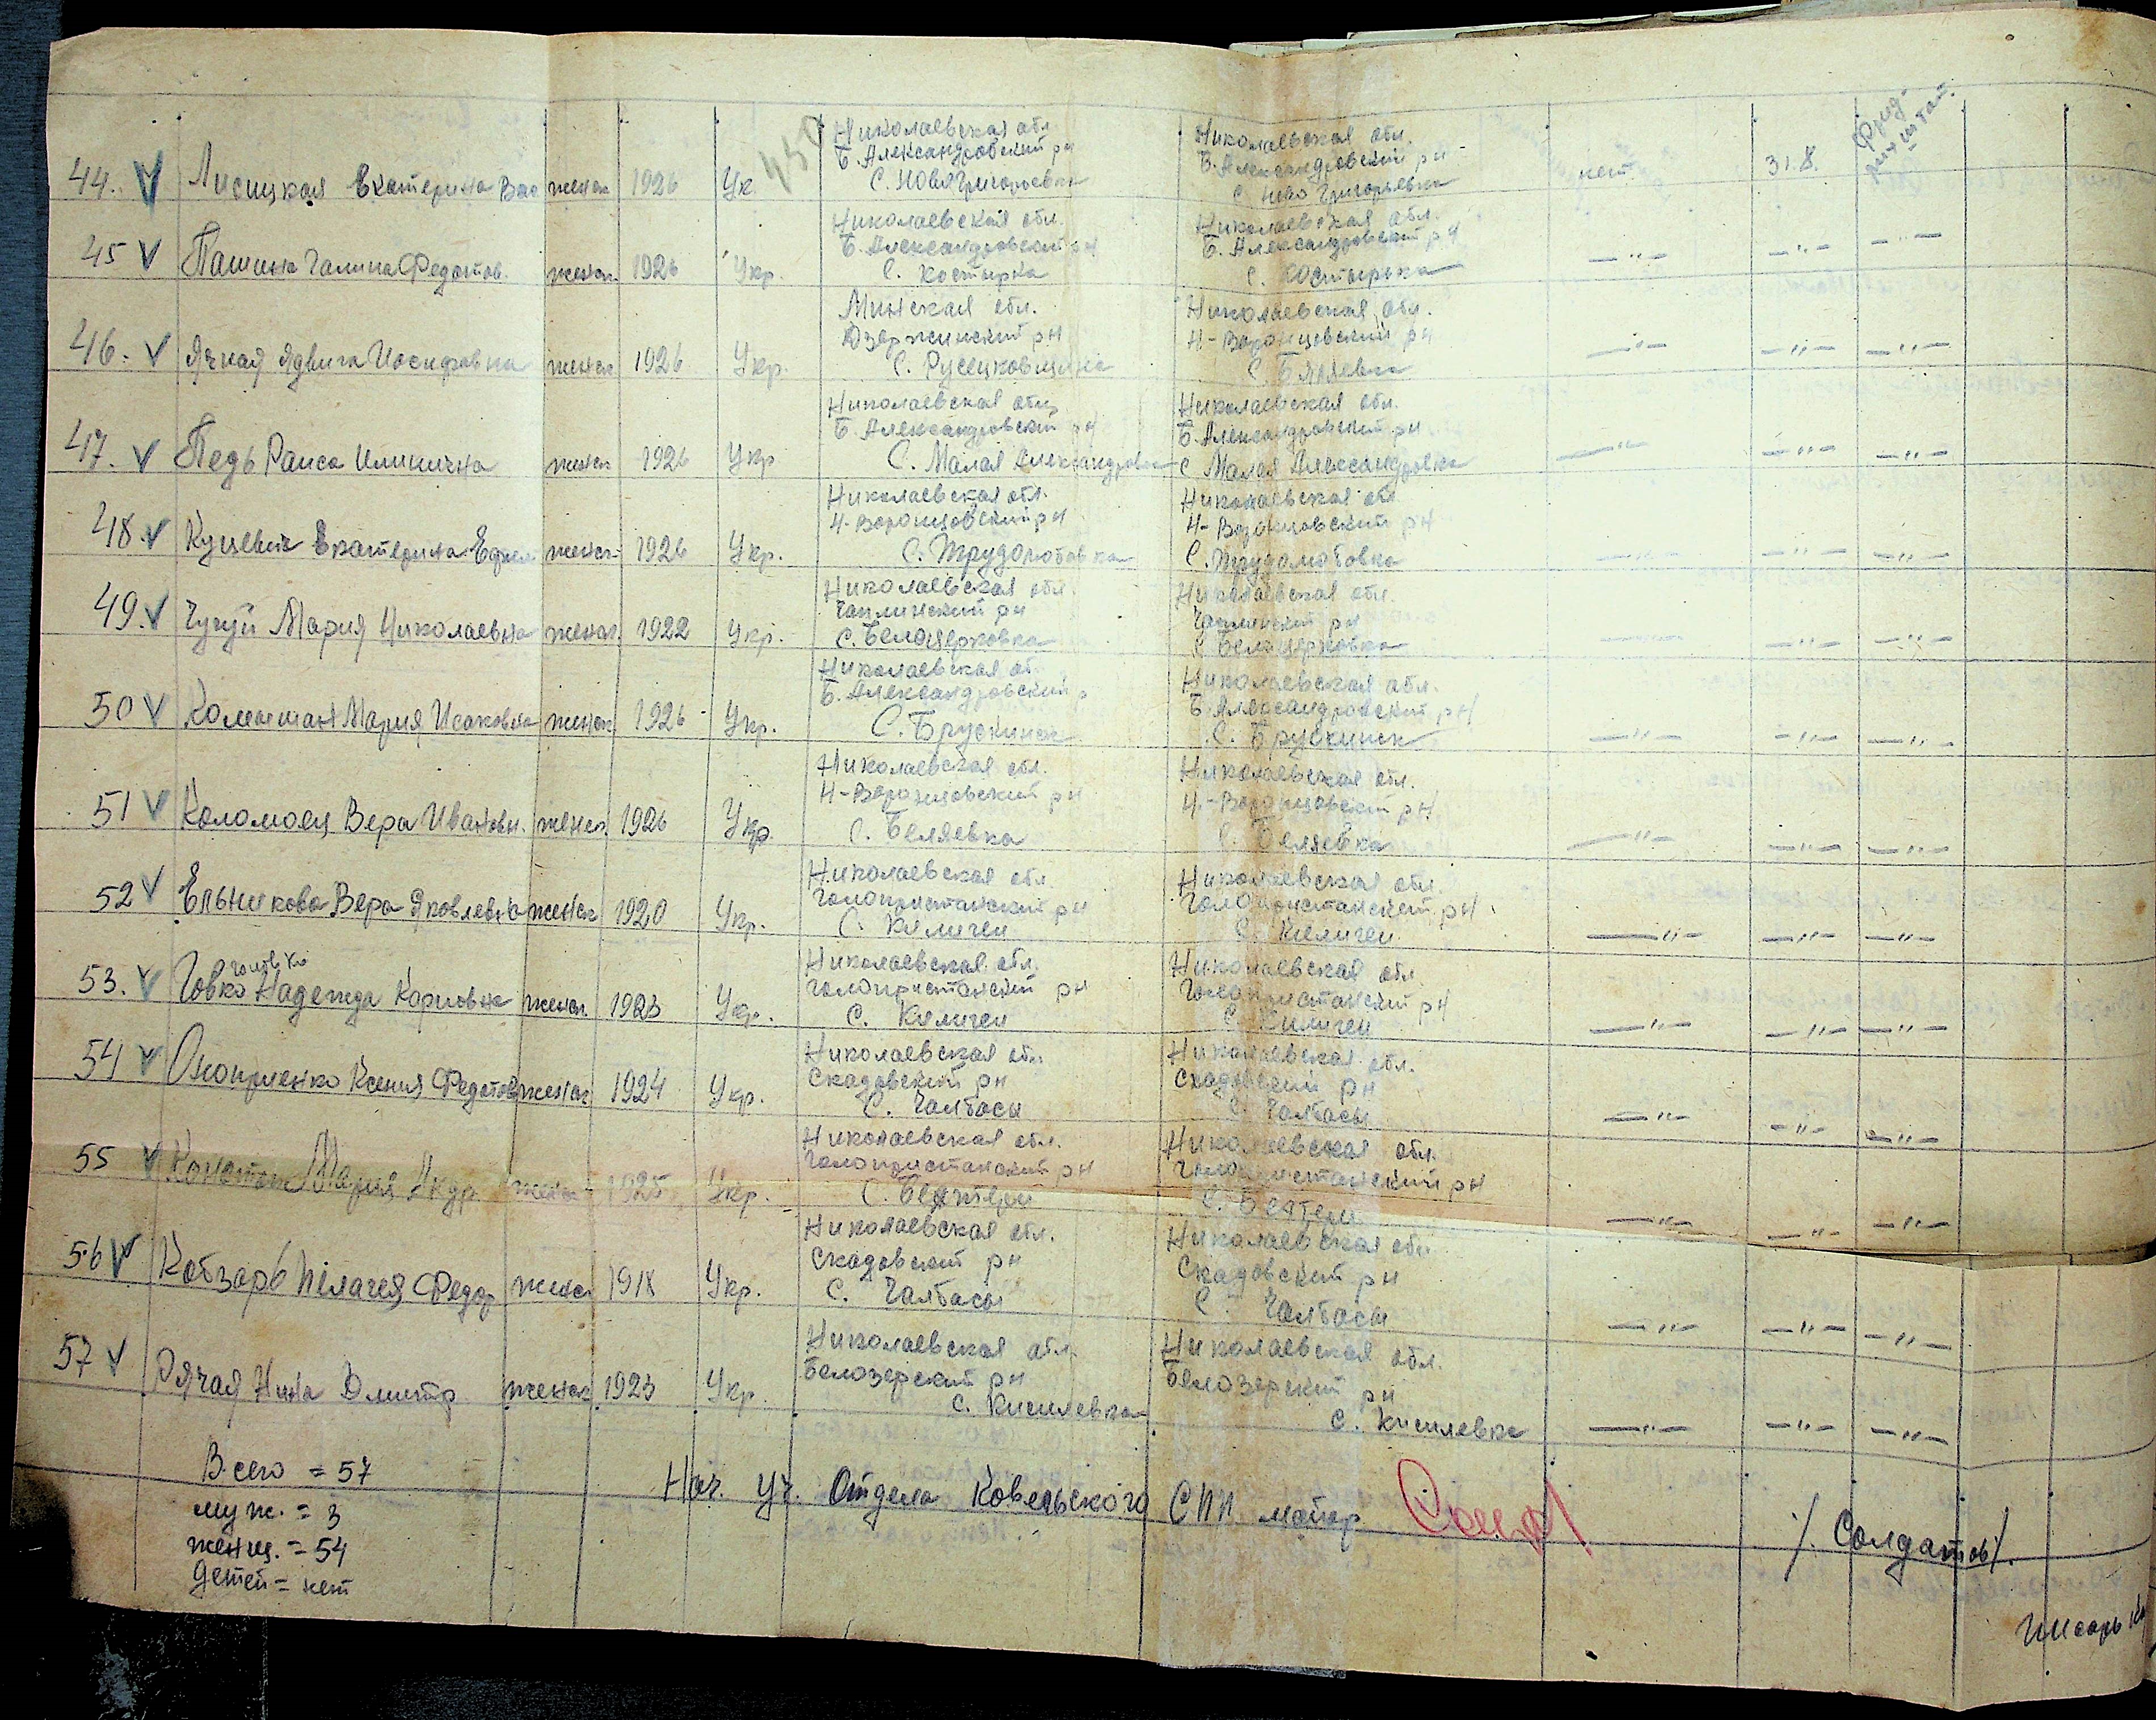 Николаевская обл. Николаевская обл.
Б. Александровский рн Б. Александровский рн
44. Лисицкая Екатерина Вас женск 1926 Ук. С. Ново Григорьевка С. Ново Григорьевка нет 31.8.
Николаевская обл. Николаевская обл.
Б. Александровский рн Б. Александровский рн
45 Пашина Галина Федотов. женск. 1926 Укр. С. Костырка С. Костырка —"— —"— —"—
Минская обл. Николаевская обл.
Дзержинский рн Н-Воронцовский рн
46. Ячная Ядвига Иосифовна женск 1926 Укр. С. Русецковщина С. Беляевка —"— —"— —"—
Николаевская обл. Николаевская обл.
Б. Александровский рн Б. Александровский рн
47. Педь Раиса женск 1926 Укр С. Малая Александровка С Малая Александровка —"— —"— —"—
Николаевская обл. Николаевская обл
Н-Воронцовский рн Н-Воронцовский рн
48. Екатерина женск. 1926 Укр. С. Трудолюбовка С. Трудолюбовка —"— —"— —"—
Николаевская обл. Николаевская обл.
Чаплинский рн Чаплинский рн
49. Чугуй Мария Николаевна женск. 1922 Укр. С. Белоцерковка С Белоцерковка —"— —"— —"—
Николаевская об. Николаевская обл.
Б. Александровский р Б. Александровский рн
50 Мария Исаковна женск 1926 Укр. С. Брускинск С. Брускинск —"— —"— —"—
Николаевская обл. Николаевская обл.
Н-Воронцовский рн Н.-Воронцовский рн
51 Коломоец Вера Ивановн. женск. 1926 Укр. С. Беляевка С. Беляевка —"— —"— —"—
Николаевская обл. Николаевская обл.
Голопристанский рн Голопристанский рн
52 Ельникова Вера Яковлевна женск 1920 Укр. С. Келигеи С. Келигеи —"— —"— —"—
Николаевская обл. Николаевская обл
Голопристанский рн Голопристанский рн
53. Говко Надежда Карповна женск. 1923 Укр. С. Келигеи С. Килигеи —"— —"— —"—
Николаевская обл. Николаевская обл.
Скадовский рн Скадовский рн
54 Оноприенко Ксения Федотов женск 1924 Укр. С. Чалбасы С. Чалбасы —"— —"— —"—
Николаевская обл. Николаевская обл.
Голопристанский рн Голопристанский рн
55 Мария женск 1925 Укр. С. Бехтеры —"— —"— —"—
Николаевская обл. Николаевская обл
Скадовский рн Скадовский рн
56 Кобзарь Пелагея Федор женск 1918 Укр. С. Чалбасы С. Чалбасы —"— —"— —"—
Николаевская обл. Николаевская обл.
Белозерский рн Белозерский рн
57 Рячая Нина Дмитр. женск. 1923 Укр. С. Киселевка С. Киселевка —"— —"— —"—
Всего = 57
муж. = 3
женщ. = 54
детей = нет
Нач. Уч. Отдела Ковельского СПП майор /Солдатов/.
Писарь